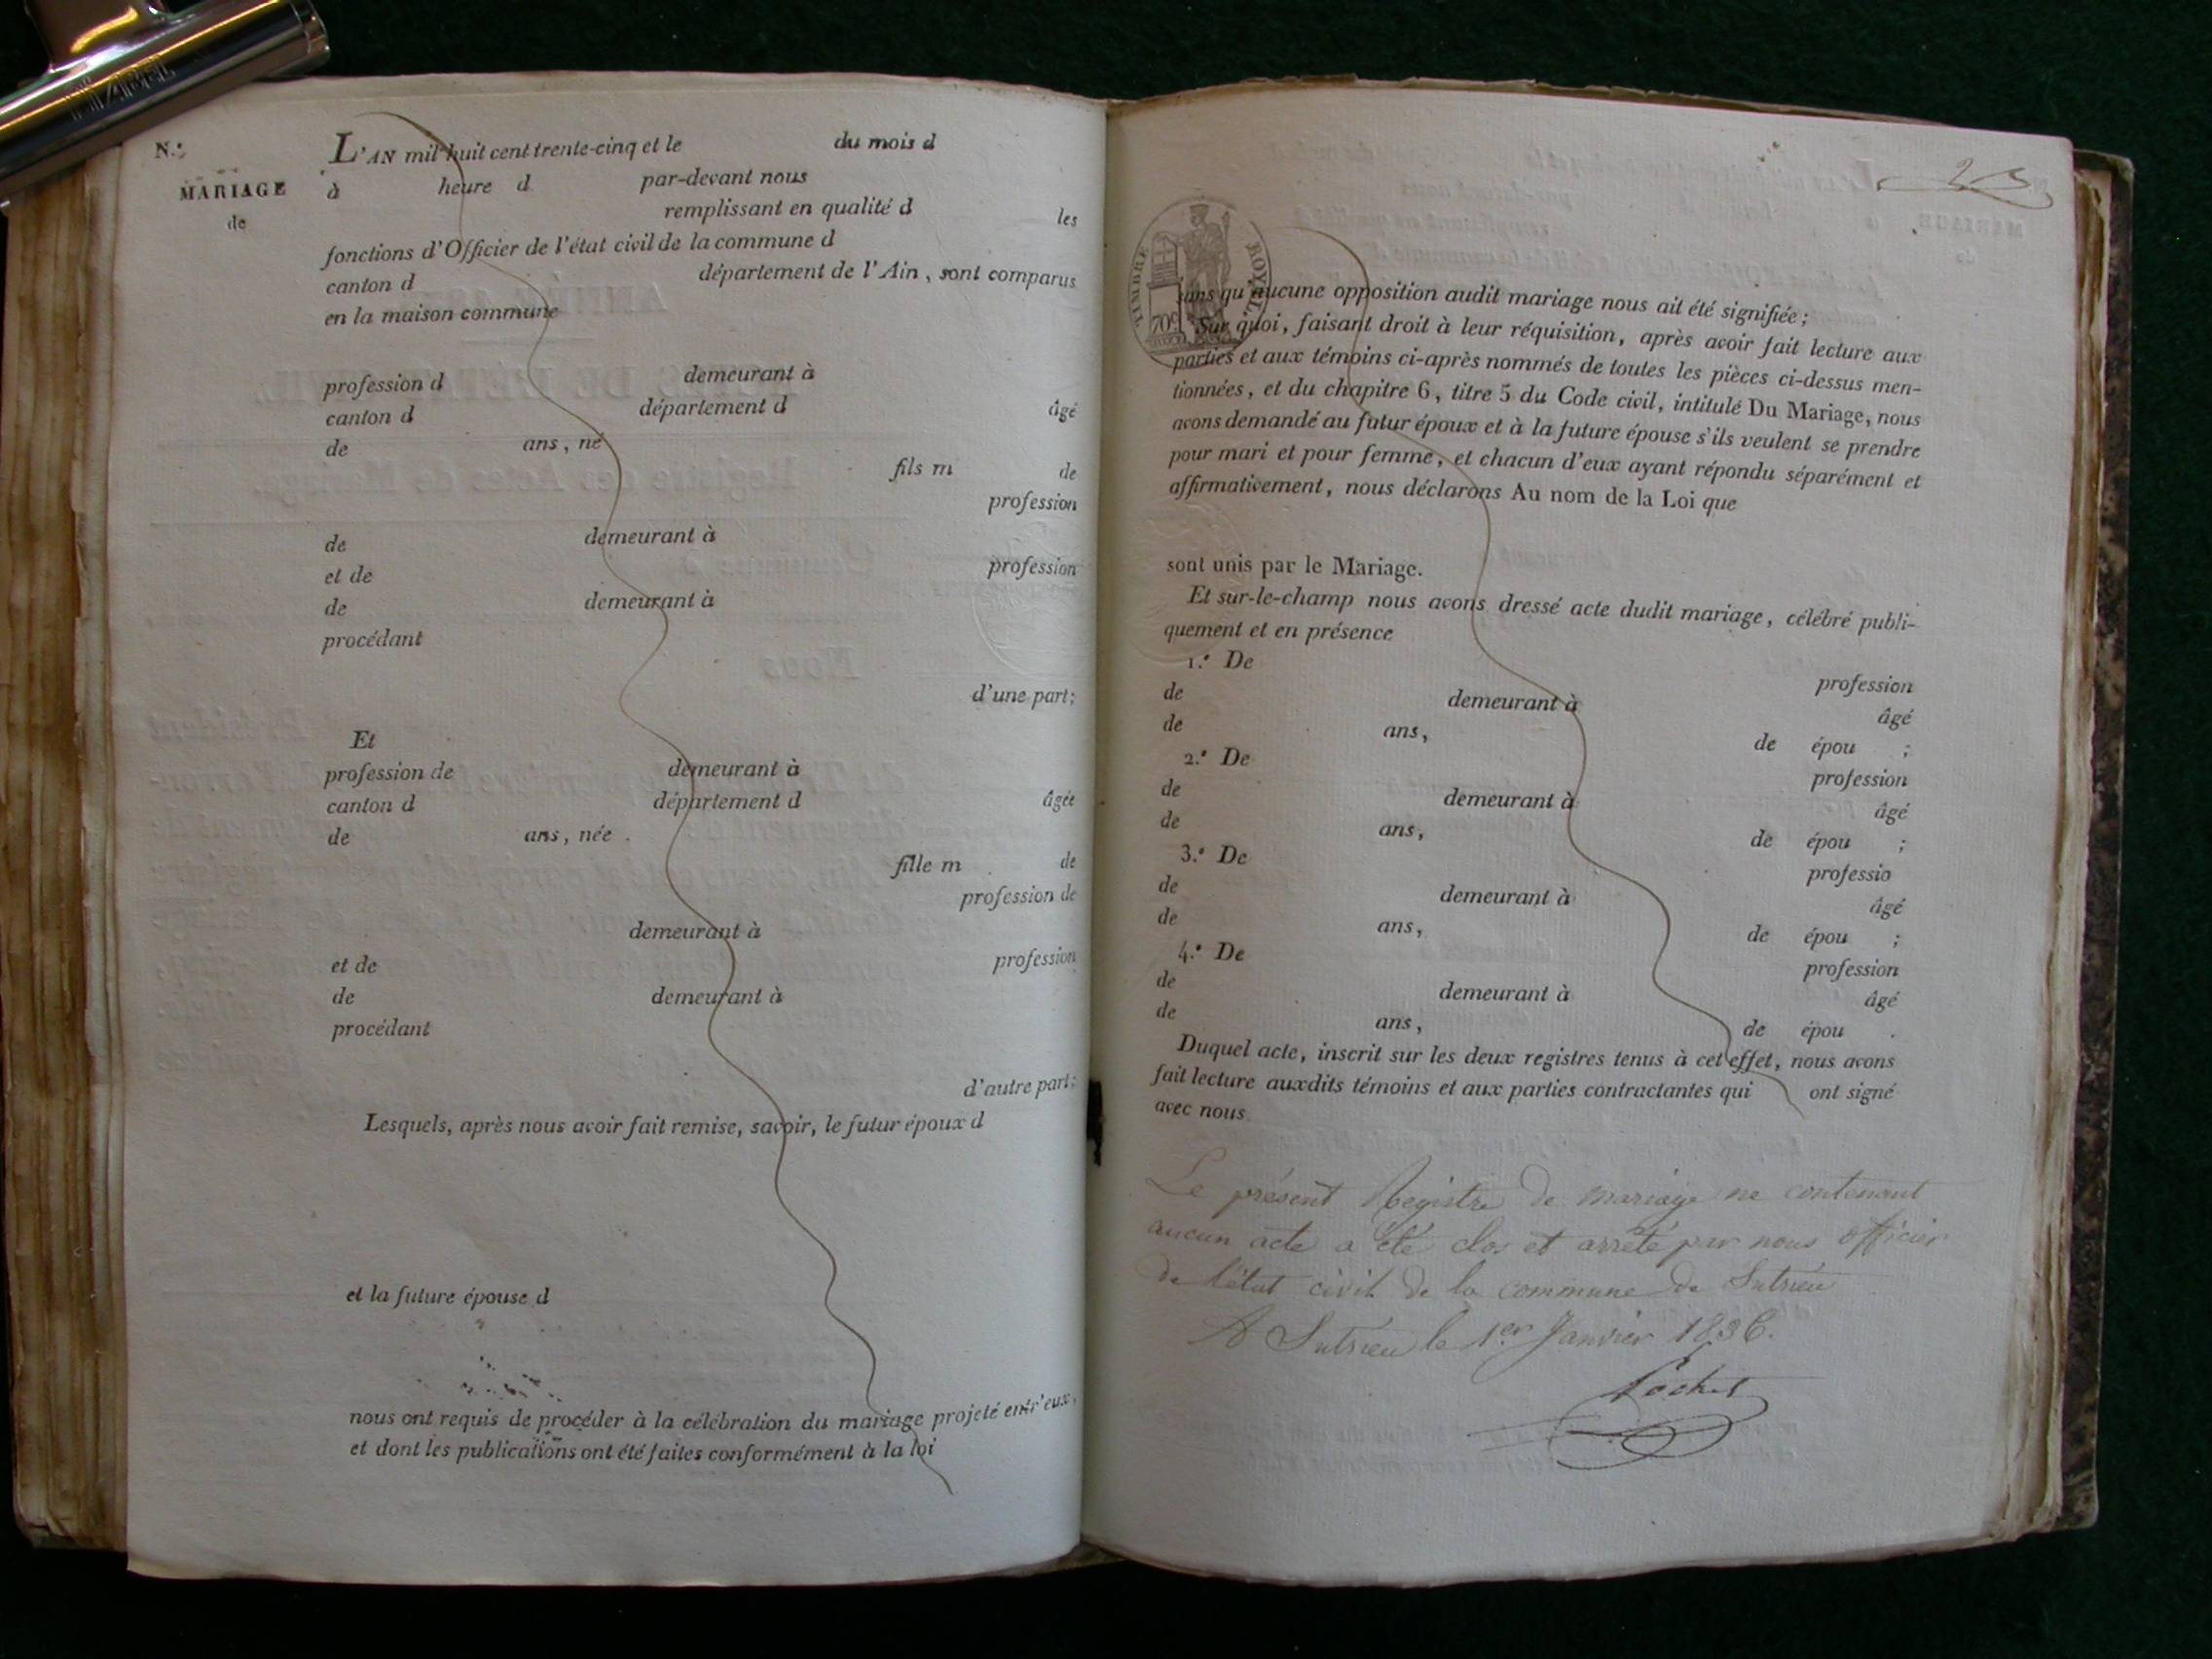 N.º
MARIAGE
de
L'AN mil huit cent trente-cinq et le du mois d
à heure d par-devant nous
remplissant en qualité d les
fonctions d'Officier de l'état civil de la commune d
canton d département de l'Ain, sont comparus
en la maison commune
profession d demeurant à
canton d département d âgé
de ans, né
fils m de
profession
de demeurant à
et de profession
de demeurant à
procédant
d'une part;
Et
profession de demeurant à
canton d département d âgée
de ans, née
fille m de
profession de
demeurant à
et de profession
de demeurant à
procédant
d'autre part;
Lesquels, après nous avoir fait remise, savoir, le futur époux d
et la future épouse d
nous ont requis de procéder à la célébration du mariage projeté entr'eux,
et dont les publications ont été faites conformément à la loi
TIMBRE ROYAL
70c
sans qu'aucune opposition audit mariage nous ait été signifiée;
Sur quoi, faisant droit à leur réquisition, après avoir fait lecture aux
parties et aux témoins ci-après nommés de toutes les pièces ci-dessus men-
tionnées, et du chapitre 6, titre 5 du Code civil, intitulé Du Mariage, nous
avons demandé au futur époux et à la future épouse s'ils veulent se prendre
pour mari et pour femme, et chacun d'eux ayant répondu séparément et
affirmativement, nous déclarons Au nom de la Loi que
sont unis par le Mariage.
Et sur-le-champ nous avons dressé acte dudit mariage, célébré publi-
quement et en présence
1.º De profession
de demeurant à âgé
de ans, de épou ;
2.º De profession
de demeurant à âgé
de ans, de épou ;
3.º De professio
de demeurant à âgé
de ans, de épou ;
4.º De profession
de demeurant à âgé
de ans, de épou .
Duquel acte, inscrit sur les deux registres tenus à cet effet, nous avons
fait lecture auxdits témoins et aux parties contractantes qui ont signé
avec nous
Le présent Registre de mariage ne contenant
aucun acte a été clos et arrêté par nous officier
de l'état civil de la commune de Sutrieu
A Sutrieu le 1er Janvier 1836.